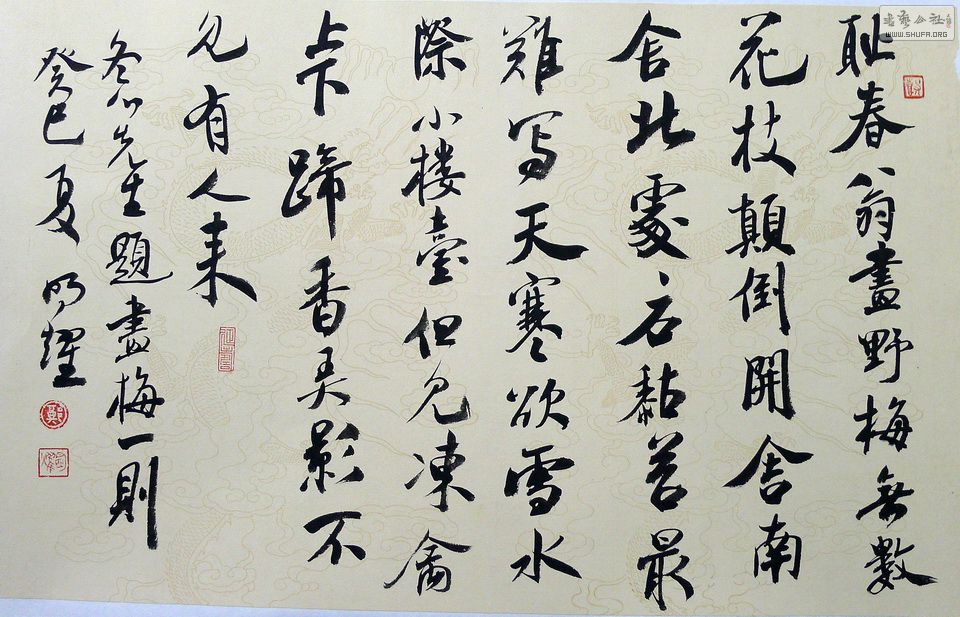 耻春翁畫野梅無數
花枝顛倒開舍南
舍北處石黏苔最
難寫天寒欲雪水
際小樓臺但見凍禽
上下蹄香弄影不
見有人來
冬心先生題畫梅一則
癸巳夏 明耀
鄭
書藝公社
WWW.SHUFA.ORG